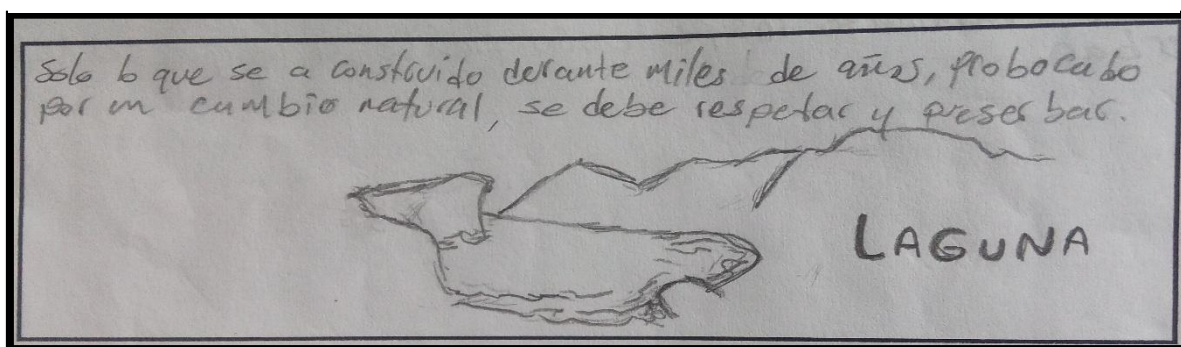 Solo lo que se a construido derante miles de años, probocado
por un cambio natural, se debe respetar y preserbar.
LAGUNA